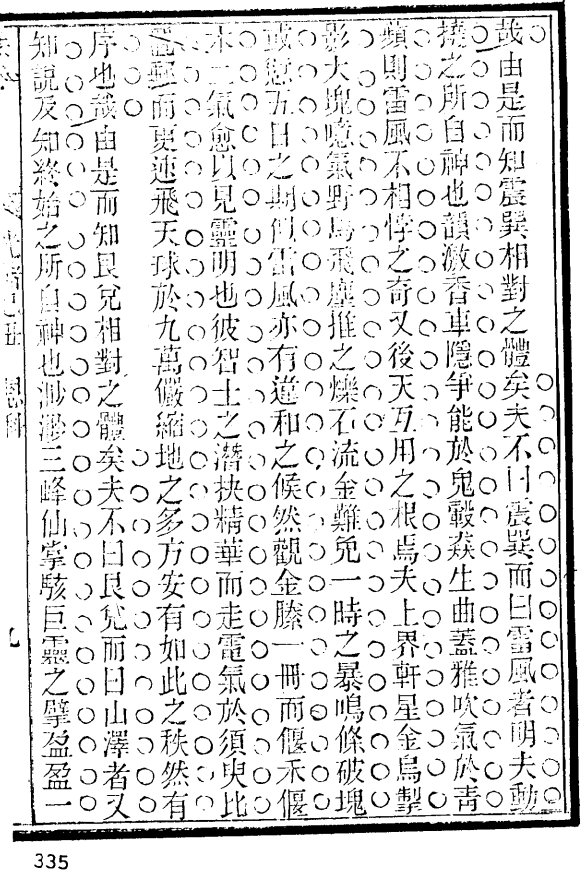 哉由是而知震巽相對之體矣夫不曰震巽而曰雷風者明夫動
撓之所自神也韻激香車隱爭能於鬼轂猋生曲蓋雅吹氣於青
蘋則雷風不相悖之奇又後天互用之根焉夫上界軒星金烏掣
影大塊噫氣野馬飛塵推之爍石流金難免一時之暴鳴條破塊
或愆五日之期似雷風亦有違和之候然觀金縢一冊而偃禾偃
木二氣愈以見靈明也彼智士之潛抉精華而走電氣於須臾比
而更速飛天球於九萬儼縮地之多方安有如此之秩然有
序也哉由是而知艮兌相對之體矣夫不曰艮兌而曰山澤者又
知說及知終始之所自神也渺渺三峰仙掌駭巨靈之擘盈盈一
九
335